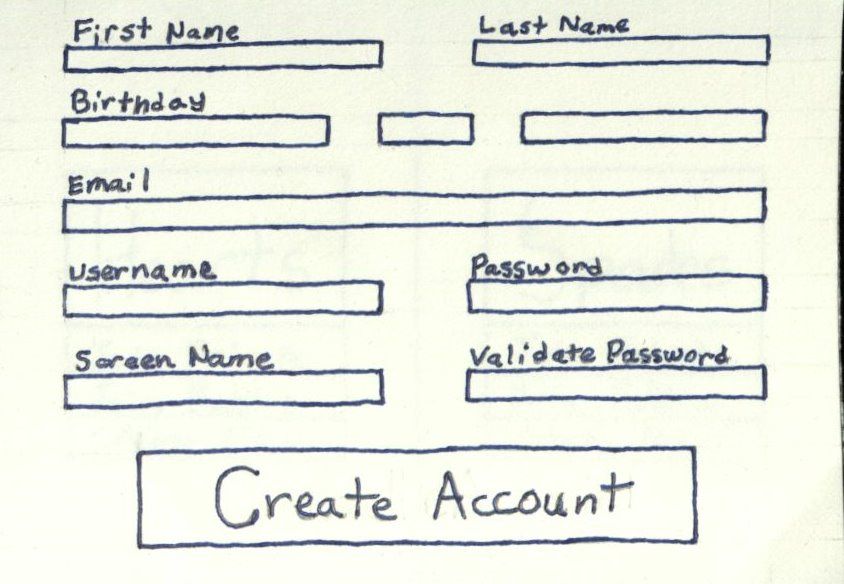 First Name
Last Name
Birthday
Email
username
Password
Screen Name
Validate Password
Create Account